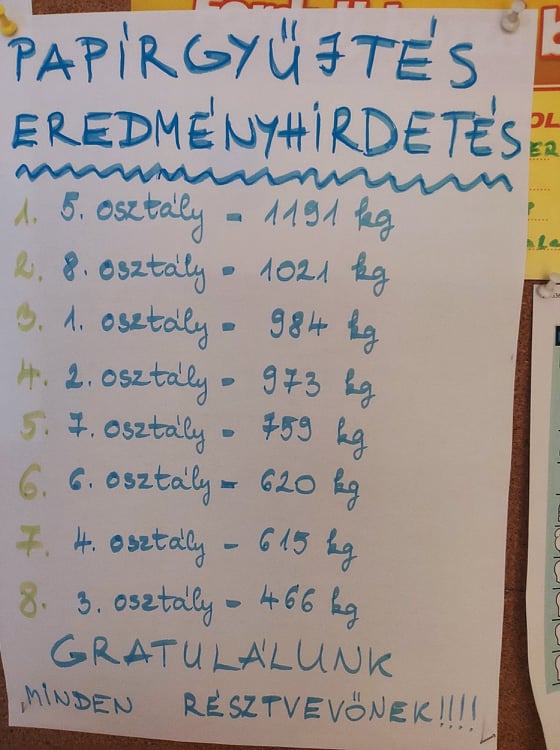 PAPÍRGYŰJTÉS
EREDMÉNYHIRDETÉS
1. 5. osztály - 1191 kg
2. 8. osztály - 1021 kg
3. 1. osztály - 984 kg
4. 2. osztály - 973 kg
5. 7. osztály - 759 kg
6. 6. osztály - 620 kg
7. 4. osztály - 615 kg
8. 3. osztály - 466 kg
GRATULÁLUNK
MINDEN RÉSZTVEVŐNEK!!!!